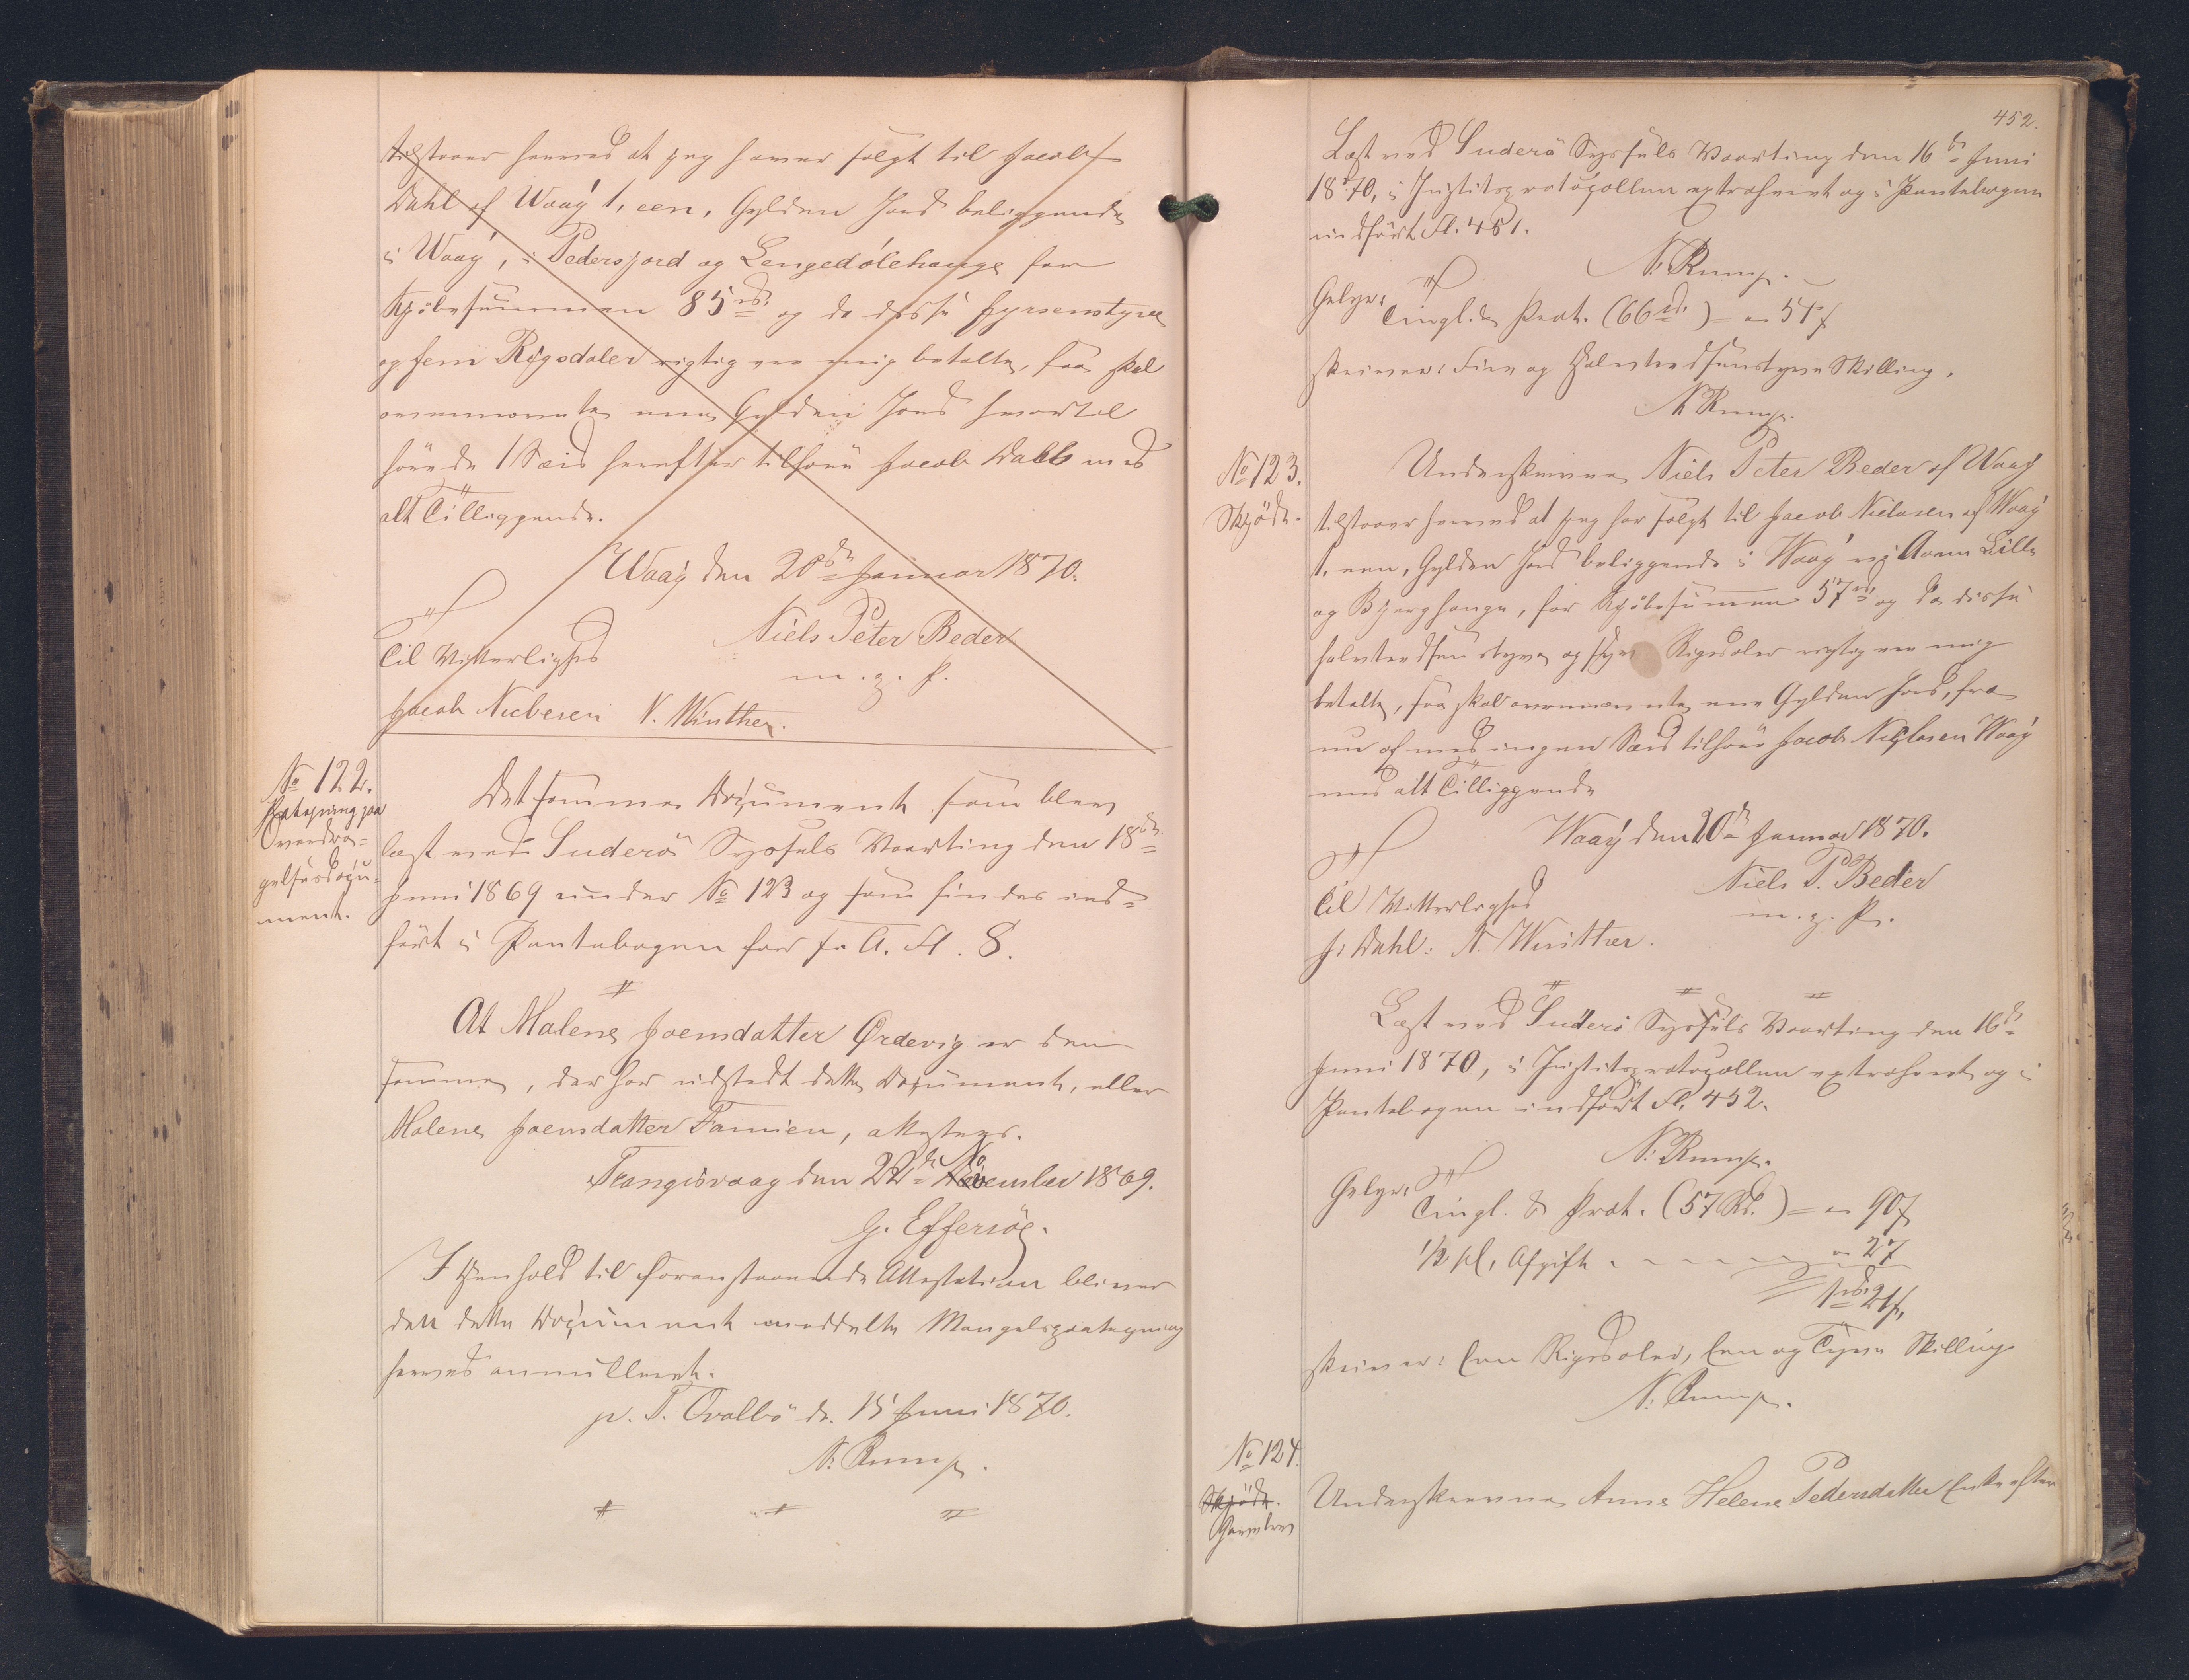 tilstaaer herved at jeg haver solgt til Jacob
Dahl af Waag 1, een, Gylden Jord beliggende
i Waag, i Pedersjord og Lengedølehauge for
Kjöbesummen 85 rd og da disse fyrsenstyve
og fem Rigsdaler rigtig ere mig betalte, saa skal
ovennævnte een Gylden Jord hvortil
hörende 1 Sæid herefter tilhöre Jacob Dahl med
alt Tilliggende.
Waag den 20de Januar 1870.
Niels Peter Beder
Til Vitterlighed
m. g. P.
Jacob Nielsen N. Winther.
No 122.
Paategning paa
Overdra-
gelsesdocu-
ment.
Det samme Document som blev
læst ved Suderö Syssels Vaarting den 18de
Juni 1869 under No 123 og som findes ind-
fört i Pantebogen for s. A. Fl. 8.
At Malene Joensdatter Ørdevig er den
samme, der har udstedt dette Document, eller
Malene Joensdatter Famien, attesteres.
Trangisvaag den 22de November 1869.
G. Effersöe.
I Henhold til foranstaaende Attestation bliver
den dette Document meddelte Mangelspaategning
herved annulleret.
p. T. Qvalbö d. 15 Juni 1870.
N. Rump.
452.
Læst ved Suderö Syssels Vaarting den 16de Juni
1870, i Justitsprotocollen extraheret og i Pantebogen
indfört Fl. 451.
N. Rump.
Gebyr:
Tingl. & Prot. (66 rd.) = 54 ß
skriver: Fire og Halvtredsenstyve Skilling.
N. Rump.
No 123.
Skjöde.
Underskrevne Niels Peter Beder af Waag
tilstaaer herved at jeg har solgt til Jacob Nielsen af Waag
1, een, Gylden Jord beliggende i Waag vej Aarne Lille
og Bjerghauge, for Kjöbesummen 57 rd og da disse
halvtredsenstyve og syv Rigsdaler rigtig ere mig
betalte, saa skal ovennævnte een Gylden Jord, fra
nu af med ingen Sæid tilhöre Jacob Nielsen Waag
med alt Tilliggende
Waag den 20de Januar 1870.
Niels P. Beder
Til Vitterlighed
m. g. P.
J. Dahl. N. Winther.
Læst ved Suderö Syssels Vaarting den 16de
Juni 1870, i Justitsprotocollen extraheret og i
Pantebogen indfört Fl. 452.
N. Rump.
Gebyr:
Tingl. & Prot. (57 Rd.) = 90 ß
1/2 pCt. Afgift 27
1 rd. 21 ß.
skriver: Een Rigsdaler, Een og Tyve Skilling
N. Rump.
No 124.
Skjöde.
Underskrevne Anne Helene Pedersdatter Enke efter